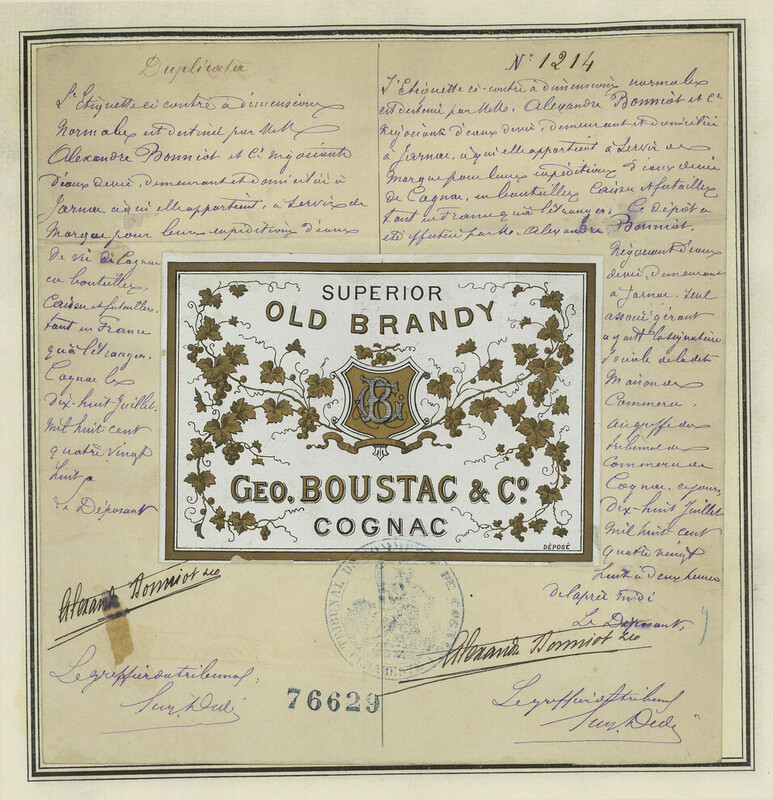 Duplicata
L'Etiquette ci contre à dimensions
Normales est destinée par M.M.
Alexandre Bonniot et Cie Négociants
d'eaux de vie, demeurant et domiciliés à
Jarnac à qui elle appartient, à servir de
Marque pour leurs expéditions d'eaux
de vie de Cognac
en bouteilles,
Caisses et futailles
tant en France
qu'à l'étranger.
Cognac les
dix-huit Juillet
mil huit cent
quatre vingt
huit
Le Déposant
Alexandre Bonniot & Co
Le greffier du tribunal,
N° 1214
L'Etiquette ci-contre à dimensions normales
est destinée par M.M. Alexandre Bonniot et Cie
Négociants d'eaux de vie, demeurant et domiciliés
à Jarnac, à qui elle appartient à servir de
Marque pour leurs expéditions d'eaux de vie
de Cognac, en bouteilles Caisses et futailles
tant en France qu'à l'étranger. Ce dépôt a
été effectué par M. Alexandre Bonniot,
Négociant d'eaux
de vie, demeurant
à Jarnac, seul
associé gérant
ayant la signature
sociale de la dite
Maison de
Commerce.
Au greffe du
tribunal de
Commerce de
Cognac, ce jour
dix-huit Juillet
mil huit cent
quatre vingt
huit à deux heures
de l'après midi
Le Déposant,
Alexandre Bonniot & Co
Le greffier du tribunal
SUPERIOR
OLD BRANDY
GEO. BOUSTAC & Co.
COGNAC
DÉPOSÉ
TRIBUNAL DE COMMERCE DE COGNAC
CHARENTE
76629